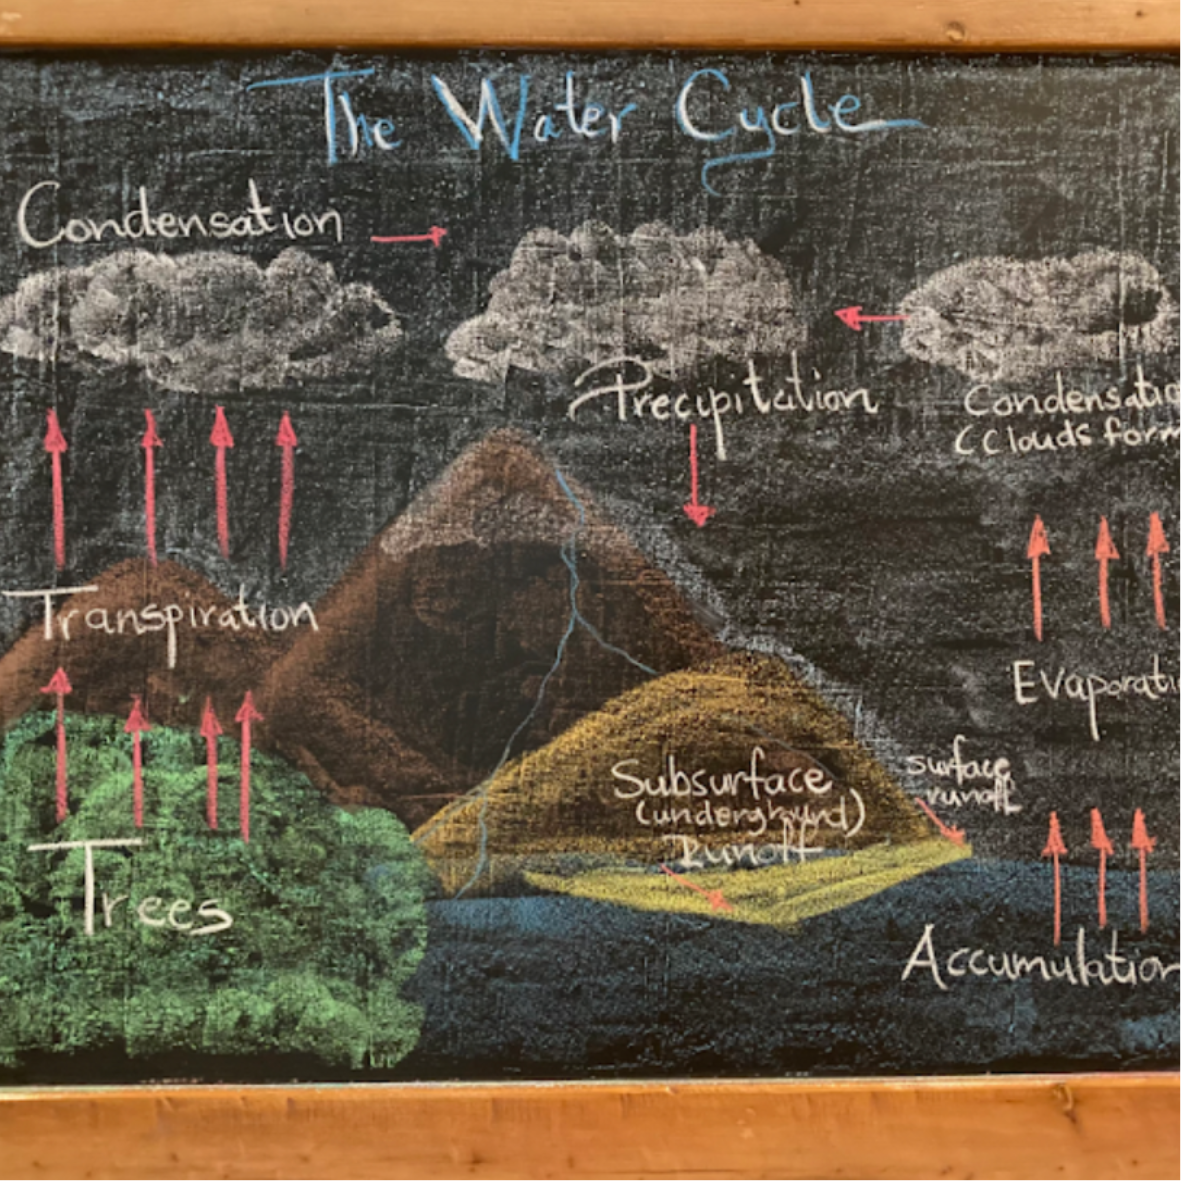 The Water Cycle
Condensation
Precipitation
Condensatio
(Clouds form
Transpiration
Evaporati
Subsurface
(underground)
Runoff
surface
runoff
Trees
Accumulation